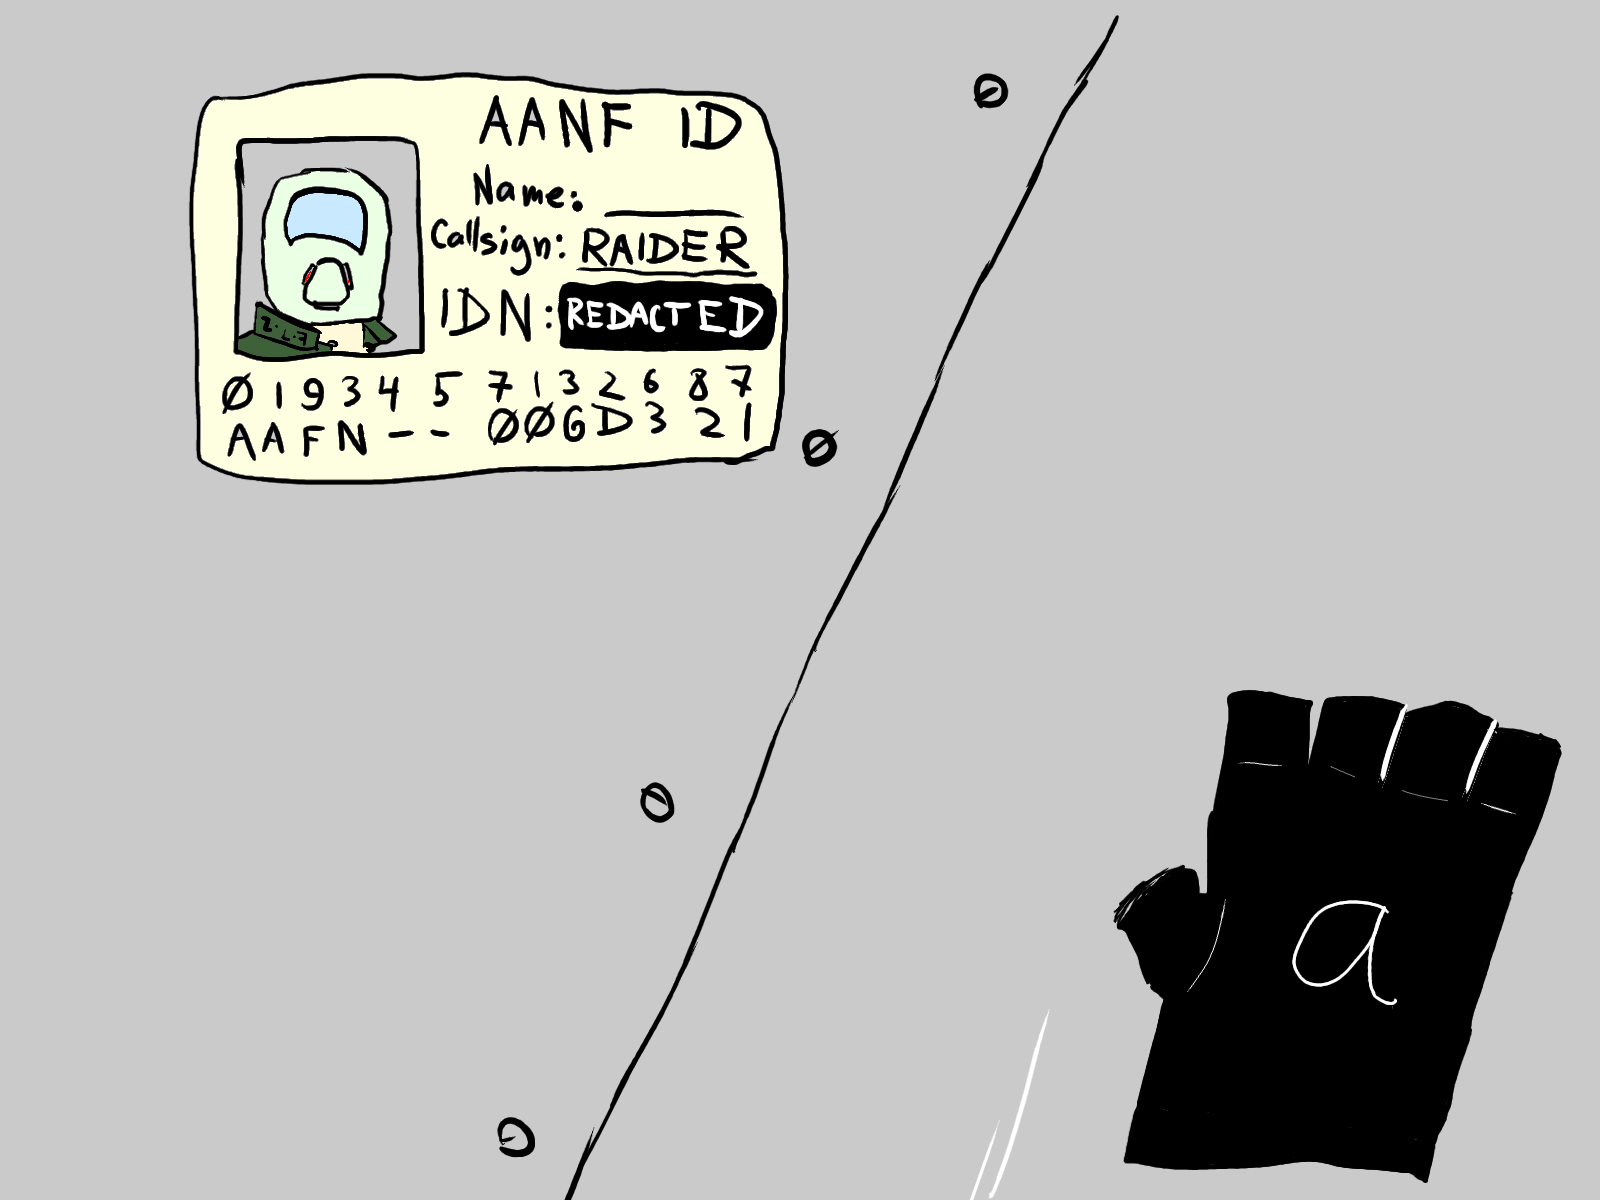 AANF ID
Name:
Callsign: RAIDER
IDN: REDACTED
2.L.7
Ø1934 5 7132687
AAFN-- ØØGD321
a